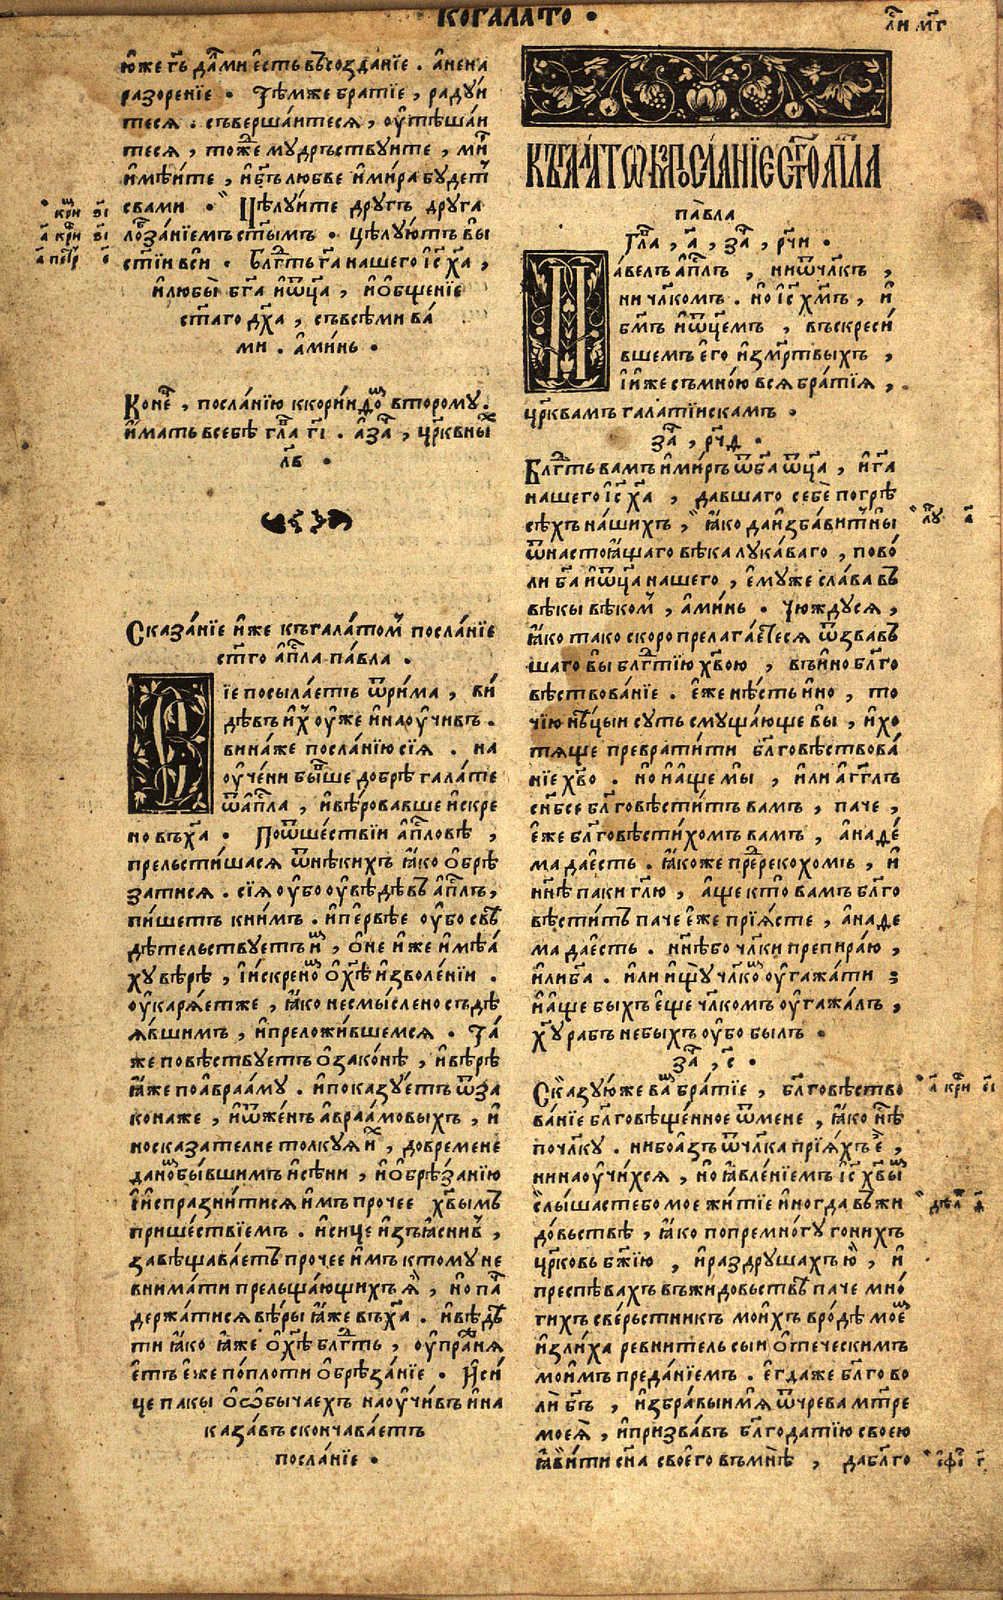 КОГАЛАТО •
л҃и мг҃
ю́же гь҃ да́ми е́сть въ созда́нїе . а҆нена
разоренїе • Тѣ́мже братїе , радꙋи
теся . съверша́итеся , ᲂу҆тѣша́и
теся , то́же мꙋдръствꙋите , ми
и҆мѣ́ите , и҆бг҃ъ любве и҆ми́ра бꙋдет
свами • Цѣлꙋ́ите дрꙋгъ дрꙋга
лобза́нїемъ ст҃ы́мъ • цѣлꙋ́ютъ вы
ст҃їи вси • Блг҃ть га҃ нашего і҆с҃ ха҃ ,
и҆любы̀ бг҃а и҆ѿц҃а , и҆о҆бщенїе
ст҃а́го дх҃а , съвсѣ́ми ва́
ми . а҆ми́нь •
Коне , посла́нїю ккори́нѳо второмꙋ .
и҆́мать всебѣ̀ гл҃а гі҃ . а҆за , цр҃квны
лв҃ •
Сказа́нїе и҆́же къгала́том посла́нїе
ст҃го а҆п҃ла па́вла .
їе посыла́етъ ѿри́ма , ви́
дѣвъ и҆́х ᲂу҆́же и҆наᲂу҆чи́въ .
вина́же посла́нїю сїя . на
ᲂу҆че́ни бы́вше добрѣ̀ гала́те
ѿа҆п҃ла , и҆вѣ́ровавше и҆скре
но въха҃ • Поѿше́ствїи а҆п҃ловѣ ,
прельсти́шася ѿнѣ́кихъ ꙗ҆́ко о҆брѣ
затися . сїя ᲂу҆́бо ᲂу҆вѣ́дѣвъ а҆п҃лъ ,
пи́шетъ кни́мъ . и҆пе́рвѣе ᲂу҆бо свѣ
дѣтельствꙋетъ и , о҆не и҆́же и҆мѣ́а
хꙋ вѣ́рѣ , і҆и́скрено о҆хѣ҃ и҆зволе́нїи .
ᲂу҆каря́етже , ꙗ҆́ко несмы́слено съдѣ
я́вшимъ , и҆преложи́вшемся • Та́
же повѣ́ствꙋетъ о҆зако́нѣ , и҆вѣ́рѣ
ꙗ҆́же поа҆враа́мꙋ . и҆показꙋ́етъ ѿза
конаже , и҆ѿже́нъ а҆враа́мовыхъ , и҆
носказателне толкꙋ́я и҆х , довремене
дано бы́вшимъ и҆сѣ́ни , и҆о҆брѣ́занїю
і҆и҆спразни́тися и҆́мъ прочее хв҃ымъ
прише́ствїемъ . и҆си́це и҆з̾ꙗ҆сни́в ,
завѣщава́етъ прочее и҆́мъ ктомꙋ̀ не
внима́ти прельща́ющихъ ꙗ҆̀ , но па
держа́тися вѣ́ры ꙗ҆́же въха҃ . и҆вѣ́дѣ
ти ꙗ҆́ко ꙗ҆́же о҆хѣ҃ блг҃ть , ᲂу҆праня
е́тъ е҆́же по́плоти о҆брѣза́нїе • И҆си́
це пакы о҆ѻ҆бы́чаехъ наᲂу҆чи́въ и҆на
каза́въ скончава́етъ
посла́нїе •
КЪ ГАЛАТѠМ ПОСЛАНЇЕ СТ҃ГО АП҃ЛА
па̀вла
Гл҃а , а҃ , за , рч҃и •
а́велъ а҆п҃лъ , ниѿчл҃къ ,
ни чл҃комъ . но і҆с҃ хм҃ъ , и҆
бг҃мъ и҆ѿц҃емъ , въскреси́
вшемъ е҆го и҆змр҃твыхъ ,
і҆и҆́же съмно́ю вся бра́тїя ,
цр҃квамъ галатїискамъ .
за , рч҃д •
Блг҃ть вамъ и҆ми́ръ ѿба҃ ѿц҃а , и҆га҃
нашего і҆с҃ ха҃ , давшаго себѐ погрѣ
сѣ́хъ на́шихъ , ꙗ҆́ко даи҆зба́вит ны
ѿнастоꙗ́щаго вѣ́ка лꙋка́ваго , пово́
ли ба҃ и҆ѿц҃а нашего , е҆мꙋ́же сла́ва въ
вѣ́кы вѣком , а҆ми́нь • Чюждꙋся ,
ꙗ҆́ко тако скоро прелага́етеся ѿзвавъ
шаго вы блг҃тїю хв҃ою , въи҆но бл҃го
вѣствова́нїе . е҆́же нѣ́сть и҆но , то
чїю нѣ́цыи сꙋть смꙋща́юще вы , и҆хо
тяще преврати́ти бл҃говѣствова́
нїе хв҃о . но и҆а҆́ще мы̀ , и҆ли а҆гг҃лъ
сн҃бсе бл҃говѣсти́тъ вамъ , паче ,
е҆́же бл҃говѣсти́хомъ вамъ , а҆наде́
ма дае́сть . ꙗ҆́коже пререкохомъ , и҆
нн҃ѣ паки гл҃ю , а҆́ще кто̀ вамъ бл҃го
вѣсти́тъ паче е҆́же прїя́сте , а҆наде
ма дае́сть . нн҃ѣбо чл҃ки препира́ю ,
и҆́либа҃ . и҆ли и҆щꙋ̀ чл҃ко ᲂу҆гажа́ти ;
и҆а҆́ще быхъ е҆ще чл҃комъ ᲂу҆гажа́лъ ,
хꙋ҃ рабъ небыхъ ᲂу҆бо былъ •
за , с҃ •
Сказꙋ́юже ва бра́тїе , бл҃говѣ́ство
ва́нїе бл҃говѣще́нное ѿмене , ꙗ҆́ко нѣ́
почл҃кꙋ . нибоа҆зъ ѿчл҃ка прїя́хъ е҆ ,
нинаᲂу҆чи́хся , но ꙗ҆вле́нїемъ і҆с҃ хв҃ы
слы́шастебо мое жи́тїе и҆ногда въжи
до́вьствѣ , ꙗ҆́ко попремно́гꙋ гонихъ
цр҃ковь бж҃їю , и҆раздрꙋшахъ ю̀ , и҆
преспѣ́вахъ въжидовьствѣ паче мно́
гихъ све́рьстникъ мои́хъ вро́дѣ мое
и҆зли́ха ревни́тель сыи о҆те́ческимъ
мои́мъ преда́нїемъ . е҆гда́же бл҃гово
лѝ бг҃ъ , и҆збра́выимя ѿчре́ва мт҃ре
моея̀ , и҆призва́въ бл҃года́тїю своею
ꙗ҆ви́ти сн҃а своего въмнѣ̀ , дабл҃го